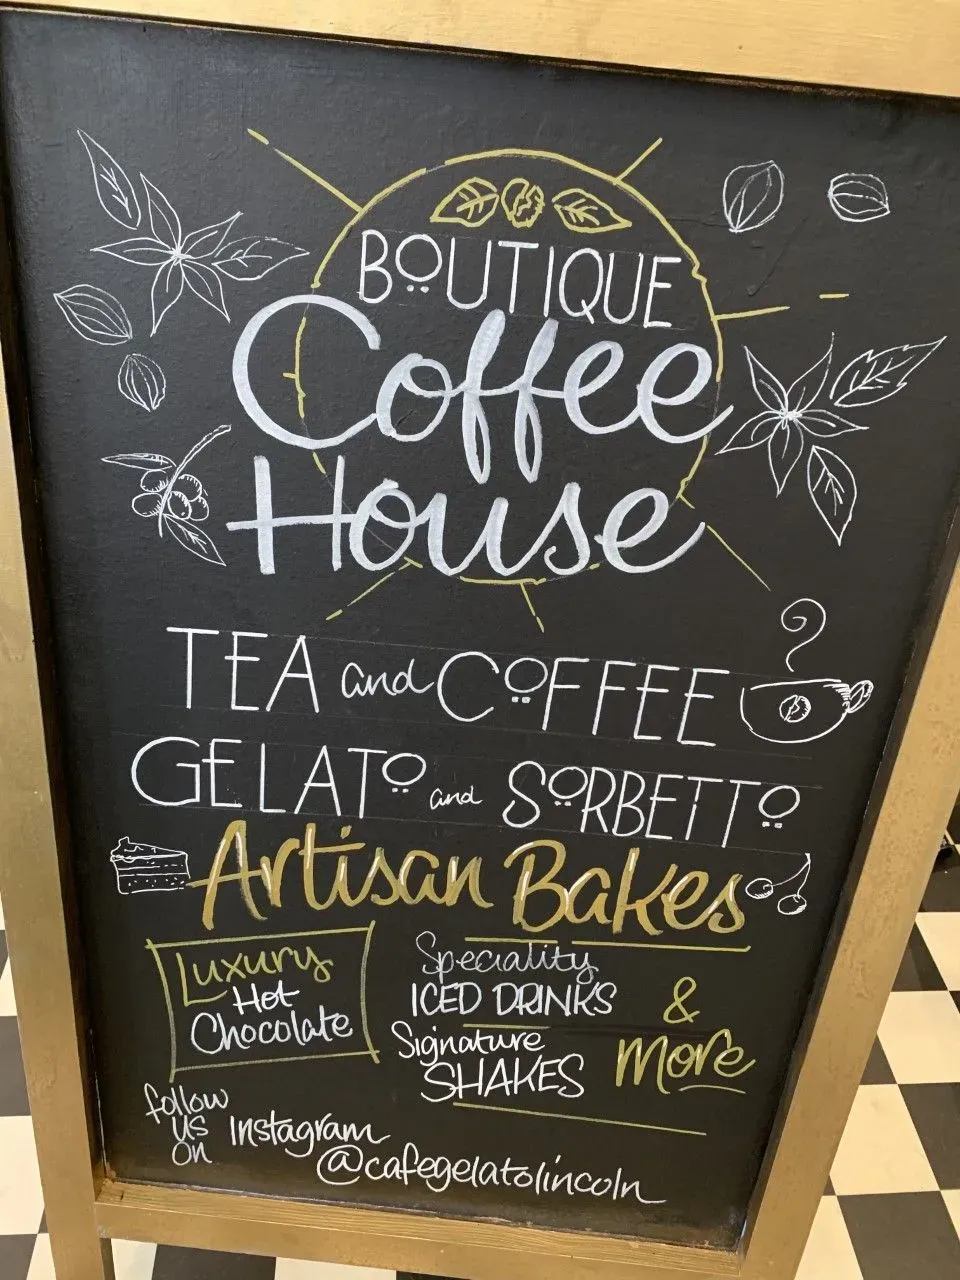 BOUTIQUE
Coffee
House
TEA and COFFEE
GELATO and SORBETTO
Artisan Bakes
Luxury
Hot
Chocolate
Speciality
ICED DRINKS
Signature
SHAKES
&
More
follow
us
on
Instagram
@cafegelatolincoln